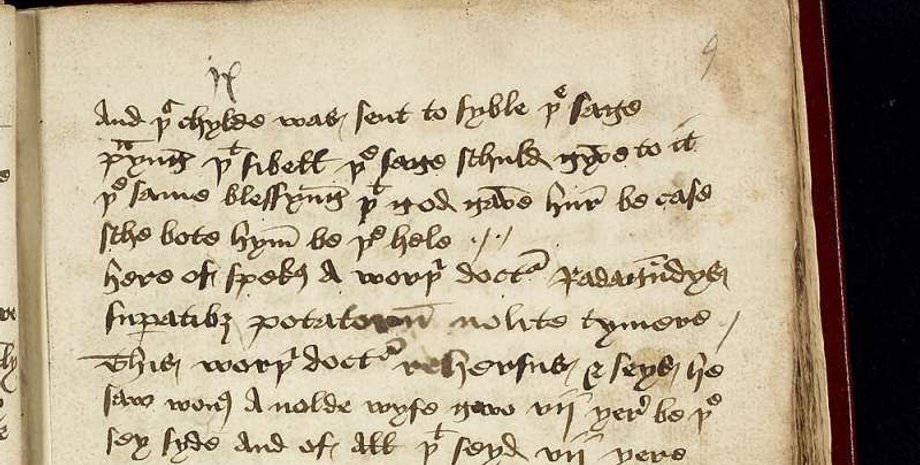 9
And þat chylde was sent to syble þe sage
prayng þat sibell þe sage schuld gyve to it
þe same blessyng þat god gave hur be case
sche bote hym be þe hele
here of spekes A worþi doctor Radagundys
supatibus potatorum nolite tymere
This worþi doctor rehersus & seys he
saw wons A nolde wyfe gwo vij yere be þe
sey syde and of all þat seyd vij yere